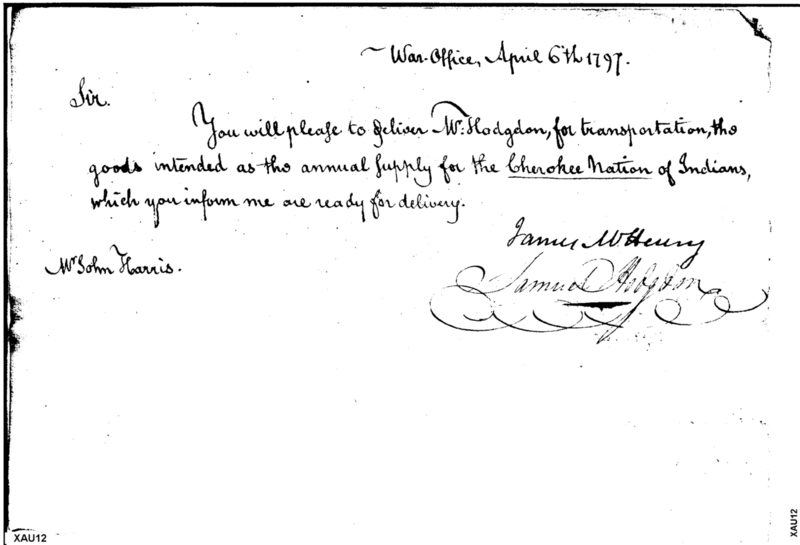 War-Office, April 6th 1797.
Sir.
You will please to deliver Mr. Hodgdon, for transportation, the
goods intended as the annual supply for the Cherokee Nation of Indians,
which you inform me are ready for delivery.
James McHenry
Mr John Harris.
Samuel Hodgdon
XAU12
XAU12